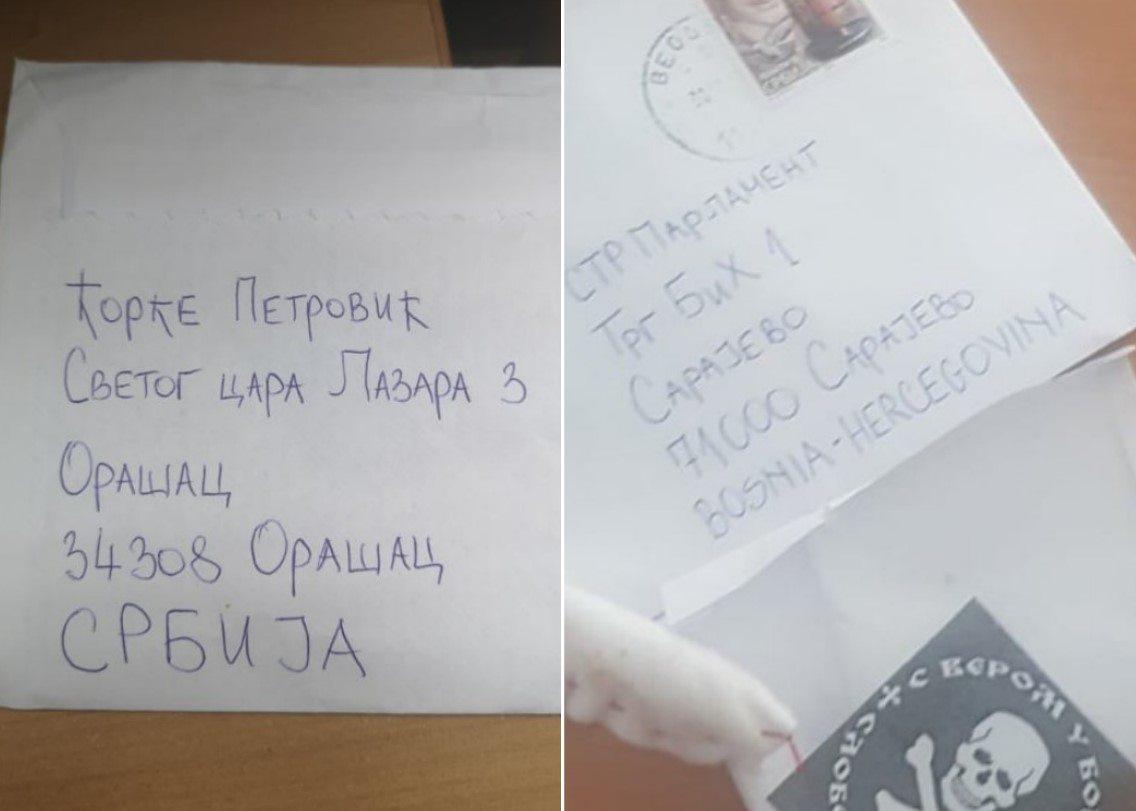 Ђорђе Петровић
Светог цара Лазара 3
Орашац
34308 Орашац
СРБИЈА
BEO
СТР Парламент
Трг БиХ 1
Сарајево
71000 Сарајево
BOSNIA-HERCEGOVINA
С ВЕРОМ У БО